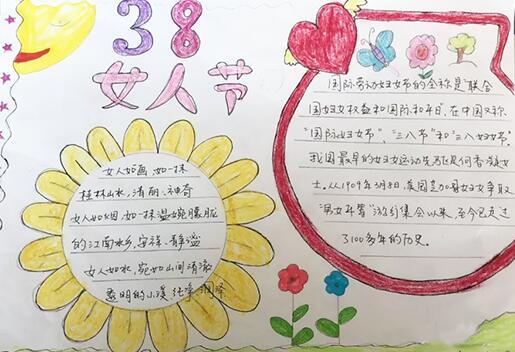 38
女人节
女人如画,如一抹
桂林山水,清丽、神奇
女人如烟,如一抹温婉朦胧
的江南水乡,安祥、静谧
女人如水,宛如山间清澈
透明的小溪 纯净 润泽
国际劳动妇女节的全称是"联合
国妇女权益和国际和平日,在中国又称
"国际妇女节"、"三八节"和"三八妇女节".
我国最早的妇女运动先驱是何香凝女
士,从1909年3月8日,美国芝加哥妇女争取
"男女平等"游行集会以来,至今已走过
了100多年的历史。